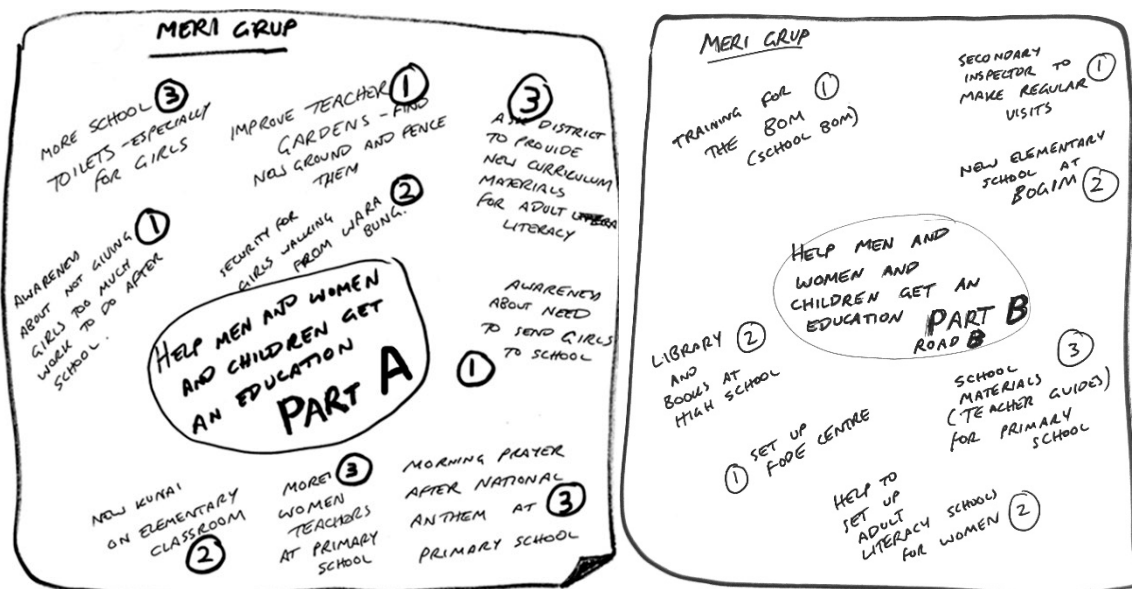 MERI GRUP
MORE SCHOOL 3
TOILETS - ESPECIALLY
FOR GIRLS
IMPROVE TEACHER 1
GARDENS - FIND
NEW GROUND AND FENCE
THEM
3
ASK DISTRICT
TO PROVIDE
NEW CURRICULUM
MATERIALS
FOR ADULT
LITERACY
AWARENESS 1
ABOUT NOT GIVING
GIRLS TOO MUCH
WORK TO DO AFTER
SCHOOL.
SECURITY FOR 2
GIRLS WALKING
FROM WARA
BUNG.
HELP MEN AND WOMEN
AND CHILDREN GET
AN EDUCATION
PART A
AWARENESS
ABOUT NEED
TO SEND GIRLS
TO SCHOOL
1
NEW KUNAI
ON ELEMENTARY
CLASSROOM
2
MORE 3
WOMEN
TEACHERS
AT PRIMARY
SCHOOL
MORNING PRAYER
AFTER NATIONAL
ANTHEM AT 3
PRIMARY SCHOOL
MERI GRUP
TRAINING FOR 1
THE BOM
(SCHOOL BOM)
SECONDARY
INSPECTOR TO 1
MAKE REGULAR
VISITS
NEW ELEMENTARY
SCHOOL AT
BOGIM 2
HELP MEN AND
WOMEN AND
CHILDREN GET AN
EDUCATION PART B
ROAD B
LIBRARY 2
AND
BOOKS AT
HIGH SCHOOL
3
SCHOOL
MATERIALS
(TEACHER GUIDES)
FOR PRIMARY
SCHOOL
1 SET UP
FODE CENTRE
HELP TO
SET UP
ADULT
LITERACY SCHOOLS
FOR WOMEN 2